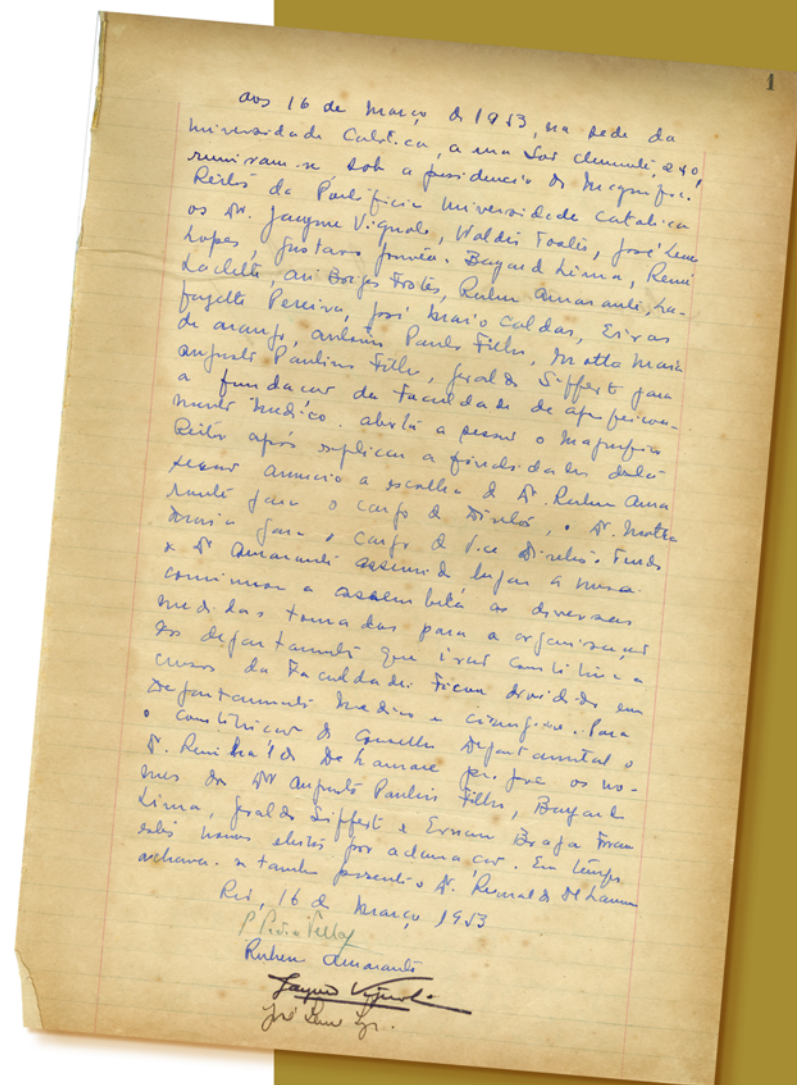 1
aos 16 de março de 1953, na sede da
Universidade Católica, a rua São Clemente, 240,
reuniram-se, sob a presidencia do Magnifico
Reitor da Pontificia Universidade Catolica
os Dr. Jayme Vignoli, Waldir Tostes, José Leme
Lopes, Gustavo Bayard Lima, René
Laclette, Ari Borges Fortes, Rubem Amarante, La-
fayette Pereira, José Mario Caldas, Eiras
de Araujo, Antonio Paulo Filho, Motta Maia
Augusto Paulino Filho, Geraldo Siffert para
a fundacao da Faculdade de aperfeicoa-
mento medico. aberta a sessao o Magnifico
Reitor após explicar a finalidade desta
sessao anuncio a escolha do Dr. Rubem Ama
rante para o cargo de Diretor, o Dr. Motta
Maia para o cargo de Vice Diretor. Tendo
o Dr Amarante assumido lugar a mesa
comunicou a assembleia as diversas
medidas tomadas para a organisaçao
dos departamentos que irao constituir a
cursos da Faculdade. Ficou dividido em
Departamento medico e cirurgico. Para
a constituicao do Conselho Departamental o
Dr. Reinaldo De Lamare propoz os no-
mes do Dr Augusto Paulino Filho, Bayard
Lima, Geraldo Siffert e Ernani Braga Foram
estes nomes eleitos por aclamaçao. Em tempo
achava-se tambem presente o Dr. Reinaldo De Lamare
Rio, 16 de março 1953
P Pedro Velloso
Rubem Amarante
Jayme Vignoli
José Leme Lopes.